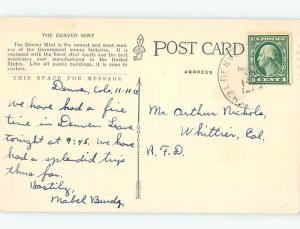 THE DENVER MINT
The Denver Mint is the newest and most mod-
ern of the Government money factories. It is
equipped with the finest steel vaults and the best
machinery ever manufactured in the United
States. Like all public buildings, it is open to
visitors.
THIS SPACE FOR MESSAGE
Denver, Colo, 11-11
We have had a fine
time in Denver. Leave
tonight at 9:45. We have
had a splendid trip
thus far.
Hastily,
Mabel
POST CARD
ADDRESS
Mr. Arthur Nichols,
Whittier, Cal.
R.F.D.